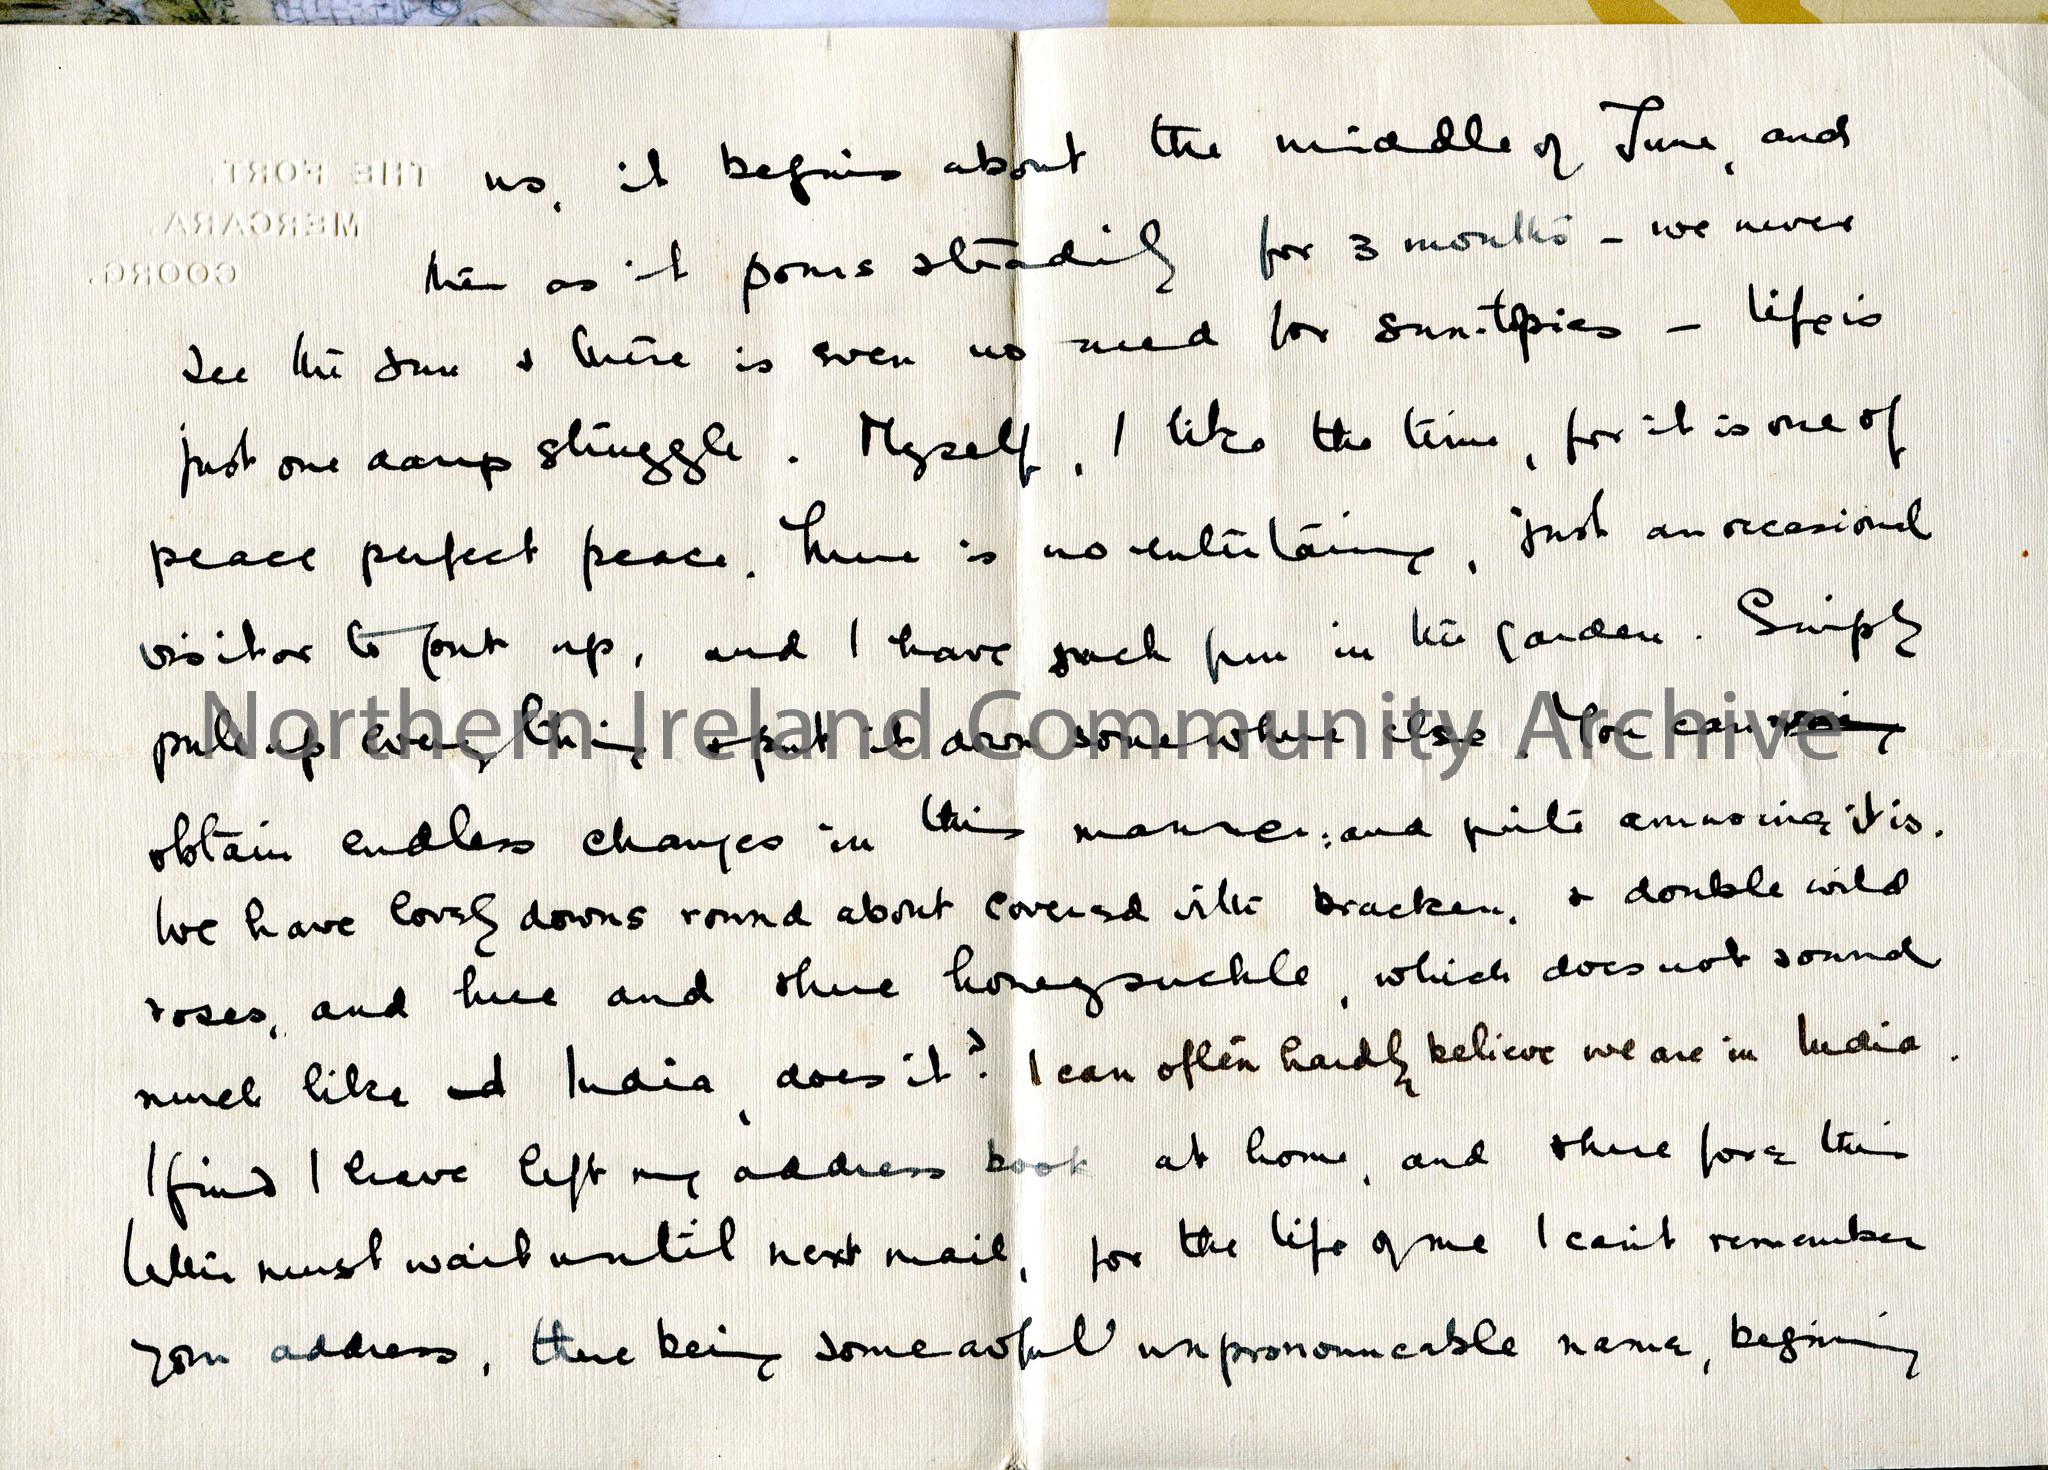 THE FORT,
MERCARA,
COORG.
us, it begins about the middle of June, and
then as it pours steadily for 3 months - we never
see the sun & there is even no need for sun-topies - life is
just one damp struggle. Myself, I like the time, for it is one of
peace perfect peace. There is no entertaining, just an occasional
visitor to put up, and I have such fun in the garden. Simply
pull up everything & put it down somewhere else. You can
obtain endless changes in this manner: and quite amusing it is.
We have lovely downs round about covered with bracken, & double wild
roses, and here and there honeysuckle, which does not sound
much like India, does it? I can often hardly believe we are in India.
I find I have left my address book at home, and therefore this
letter must wait until next mail, for the life of me I can't remember
your address, there being some awful unpronounceable name, beginning
Northern Ireland Community Archive